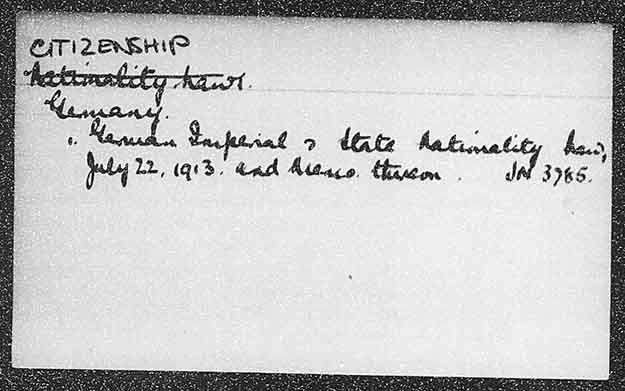 CITIZENSHIP
Nationality Laws.
Germany.
German Imperial & State Nationality Law,
July 22, 1913. and Memo. thereon. JN 3785.